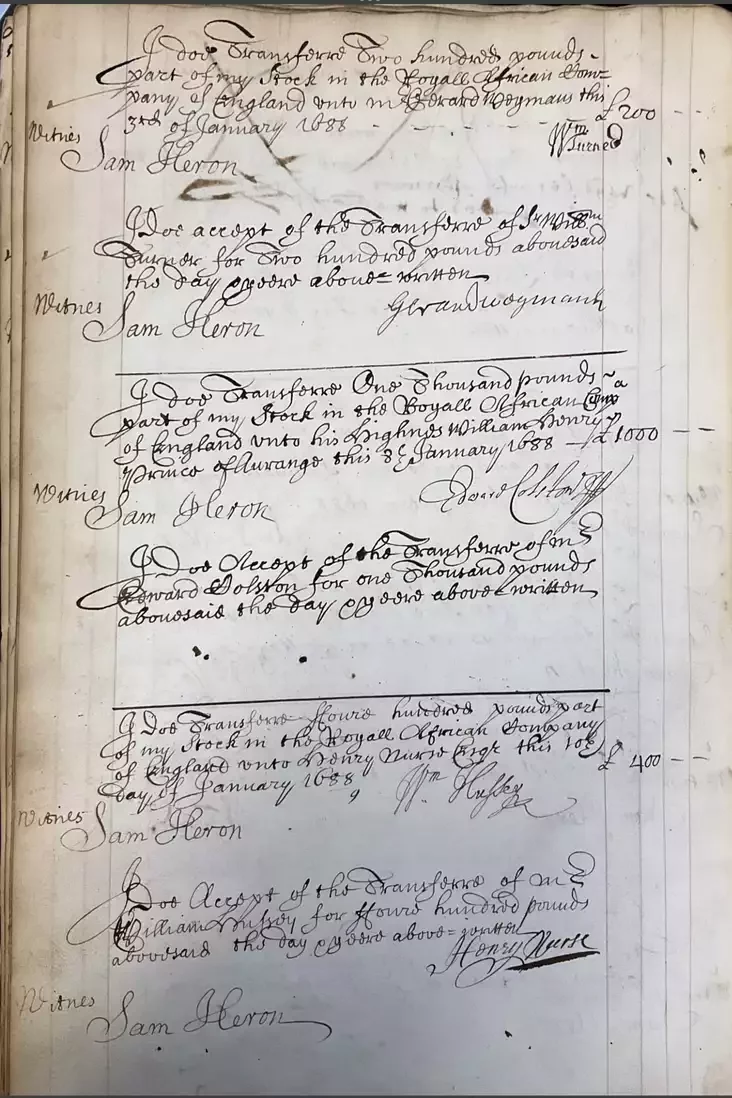 I doe Transferre Two hundred pounds
part of my Stock in the Royall African Com=
pany of England unto mr Gerard Weymans this
3rd of January 1688 - - - - - - £200 - -
Wm Turner
Witnes
Sam Heron
I Doe accept of the Transferre of Sr Willm
Turner for Two hundred pounds abovesaid
the day & yeere above= written
Witnes
Gerard weymans
Sam Heron
I doe Transferre One Thousand pounds
part of my Stock in the Royall African Compa
of England unto his Highnes William Henry
Prince of Aurange this 8th January 1688 - £1000 - -
Witnes
Edward Colston
Sam Heron
I Doe Accept of the Transferre of mr
Edward Colston for one Thousand pounds
abovesaid the day & yeere above= written
I Doe Transferre ffoure hundred pounds part
of my Stock in the Royall African Company
of England unto Henry Nurse Esqr this 10th £ 400 - -
day of January 1688
Wm Hussey
Witnes
Sam Heron
I Doe Accept of the Transferre of mr
William Hussey for ffoure hundred pounds
abovesaid the day & yeere above= written
Henry Nurse
Witnes
Sam Heron